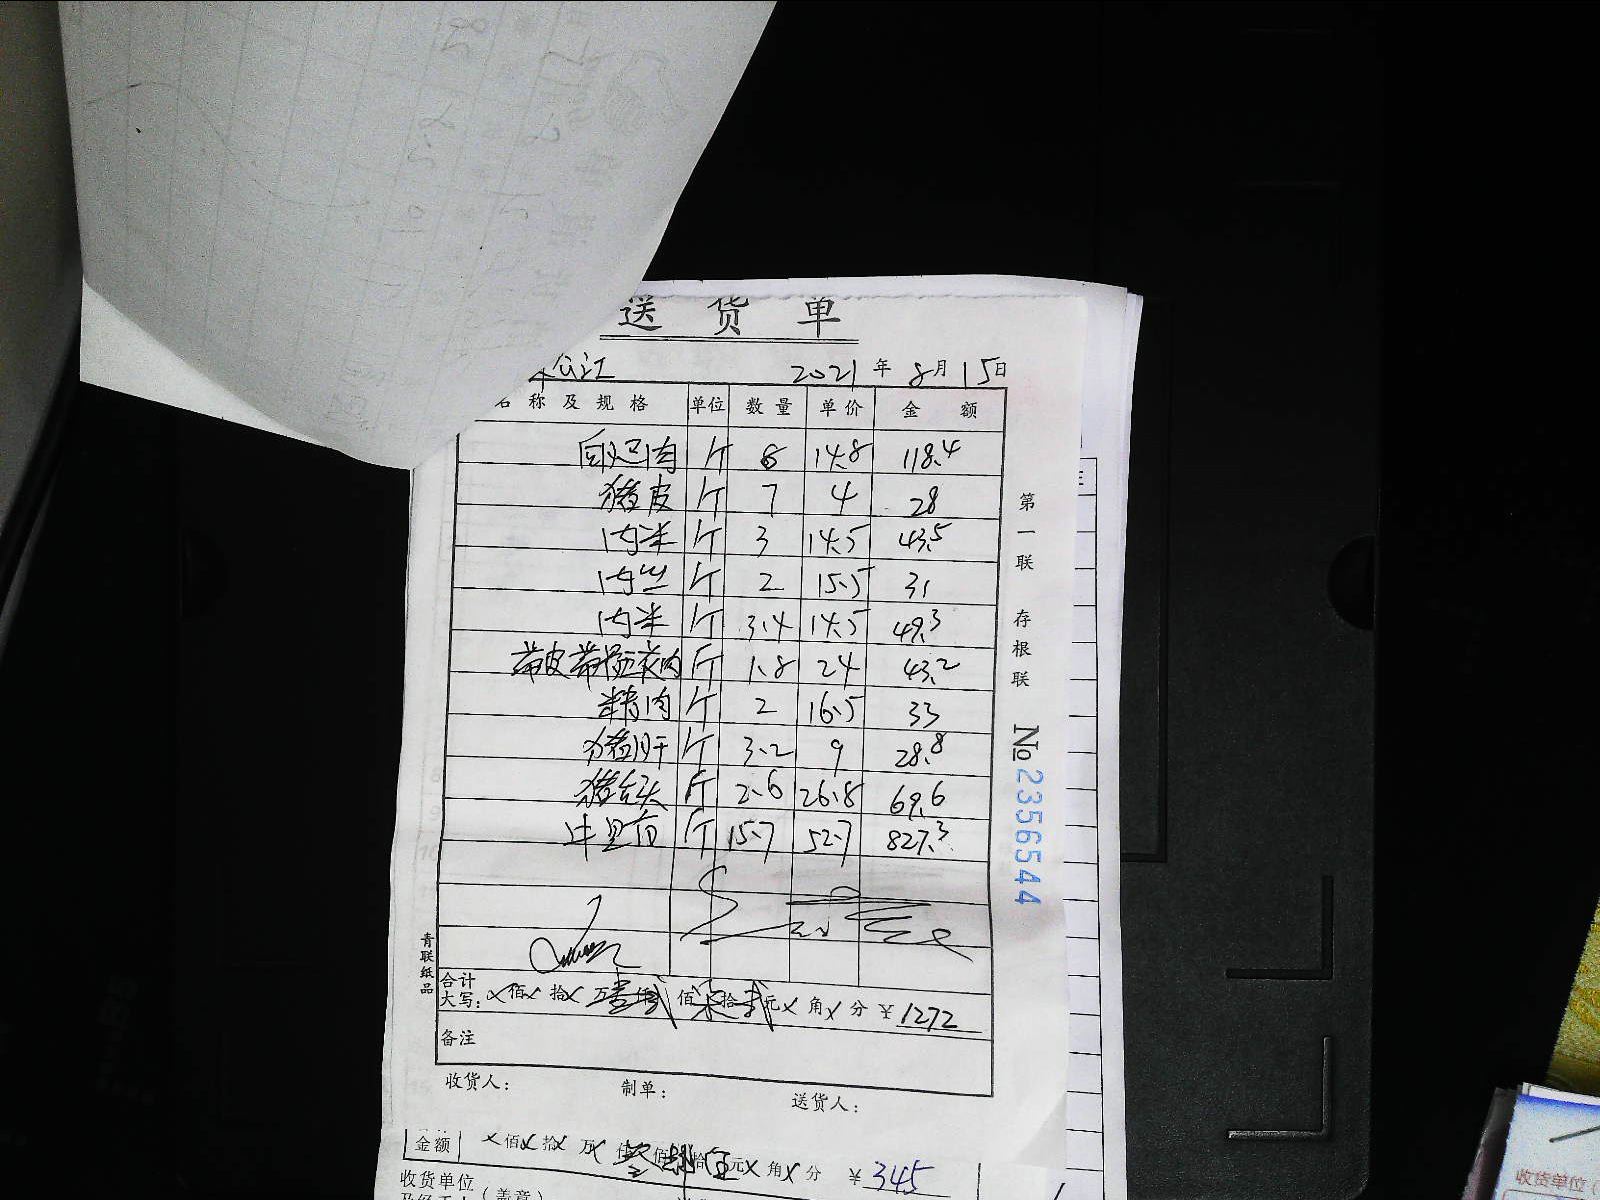 送货单
2021年8月15日
名称及规格 单位 数量 单价 金额
回锅肉 斤 8 14.8 118.4
猪皮 斤 7 4 28
肉米 斤 3 14.5 43.5
肉丝 斤 2 15.5 31
肉米 斤 3.4 14.5 49.3
带皮带骨五花肉 斤 1.8 24 43.2
精肉 斤 2 16.5 33
猪肝 斤 3.2 9 28.8
猪舌头 斤 2.6 26.8 69.6
牛里脊 斤 15.7 52.7 827.3
合计
大写: ×佰×拾×万壹仟贰佰柒拾贰元×角×分 ¥1272
备注
收货人: 制单: 送货人:
第一联 存根联
No 2356544
青联纸品
金额 ×佰×拾×万×仟叁佰肆拾伍元×角×分 ¥345
收货单位
收货单位